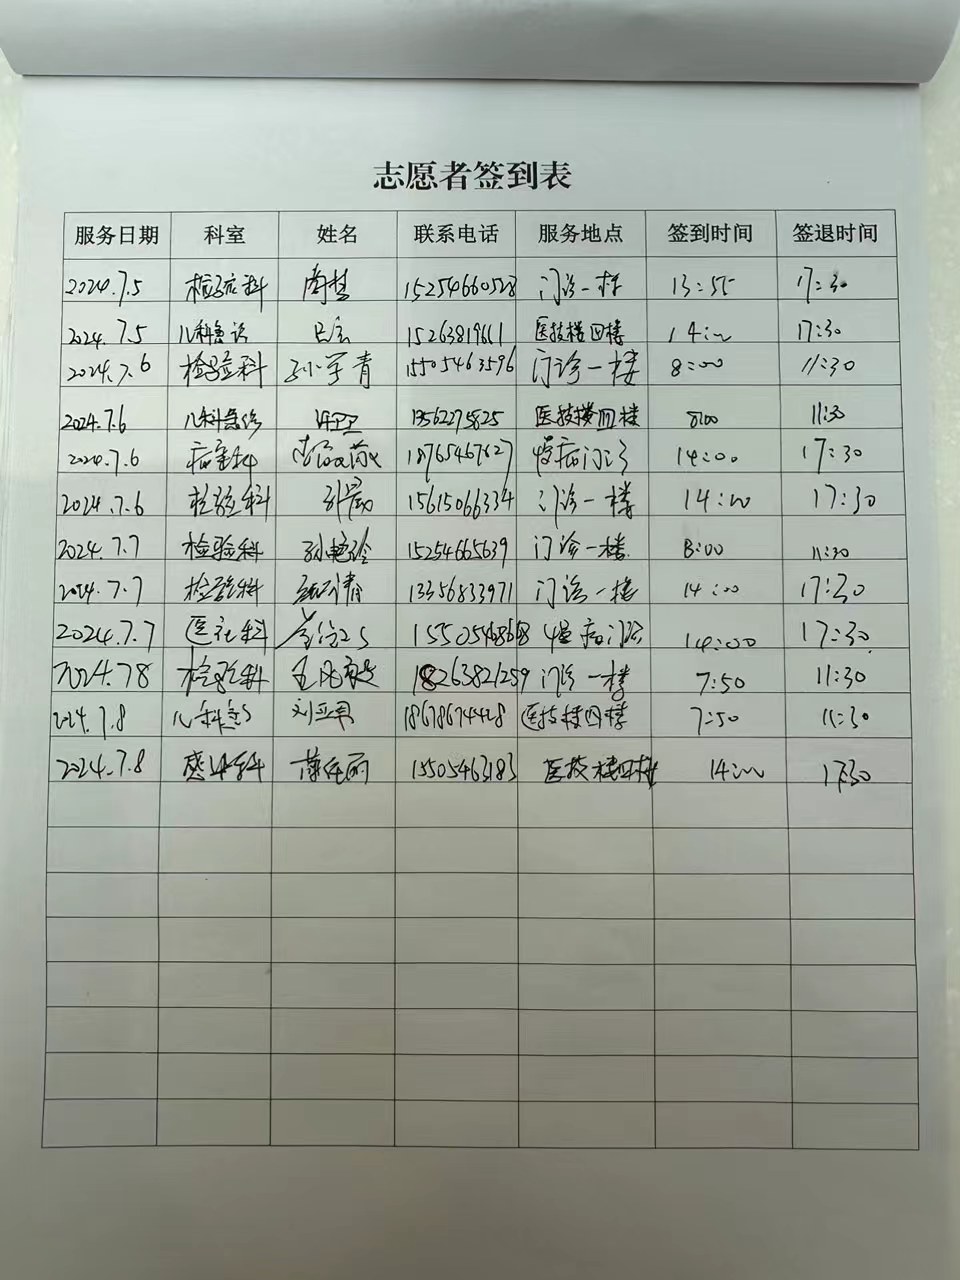 志愿者签到表
服务日期 科室 姓名 联系电话 服务地点 签到时间 签退时间
2024.7.5 检验科 15254660528 门诊一楼 13:55 17:30
2024.7.5 儿科急诊 15263819661 医技楼四楼 14:00 17:30
2024.7.6 检验科 孙学青 15505463596 门诊一楼 8:00 11:30
2024.7.6 儿科急诊 13562275825 医技楼四楼 8:00 11:30
2024.7.6 18765467627 慢病门诊 14:00 17:30
2024.7.6 检验科 15615066334 门诊一楼 14:00 17:30
2024.7.7 检验科 孙艳玲 15254665639 门诊一楼 8:00 11:30
2024.7.7 检验科 13356833971 门诊一楼 14:00 17:30
2024.7.7 慢病门诊 14:00 17:30
2024.7.8 检验科 18263821259 门诊一楼 7:50 11:30
2024.7.8 刘亚男 18678674428 医技楼四楼 7:50 11:30
2024.7.8 感染科 15505463183 医技楼四楼 14:00 17:30